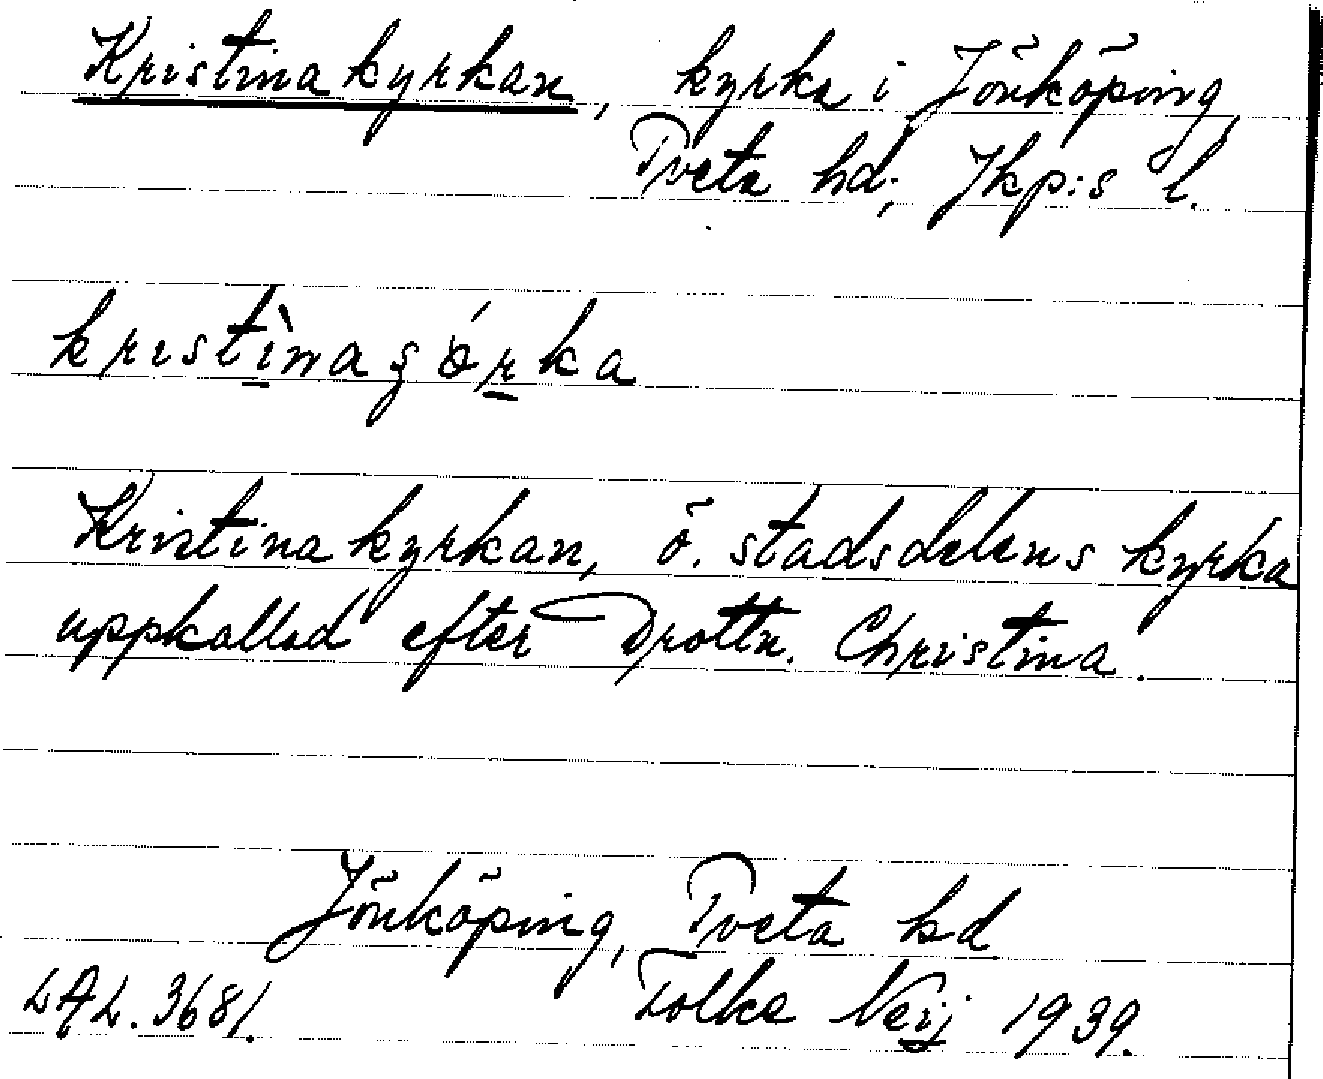 Kristinakyrkan, kyrka i Jönköping,
Tveta hd; Jkp:s l.
kristìnaʂɵ́rka
Kristinakyrkan, ö. stadsdelens kyrka
uppkallad efter Drottn. Christina.
Jönköping, Tveta hd
LAL. 3681. Folke Neij 1939.